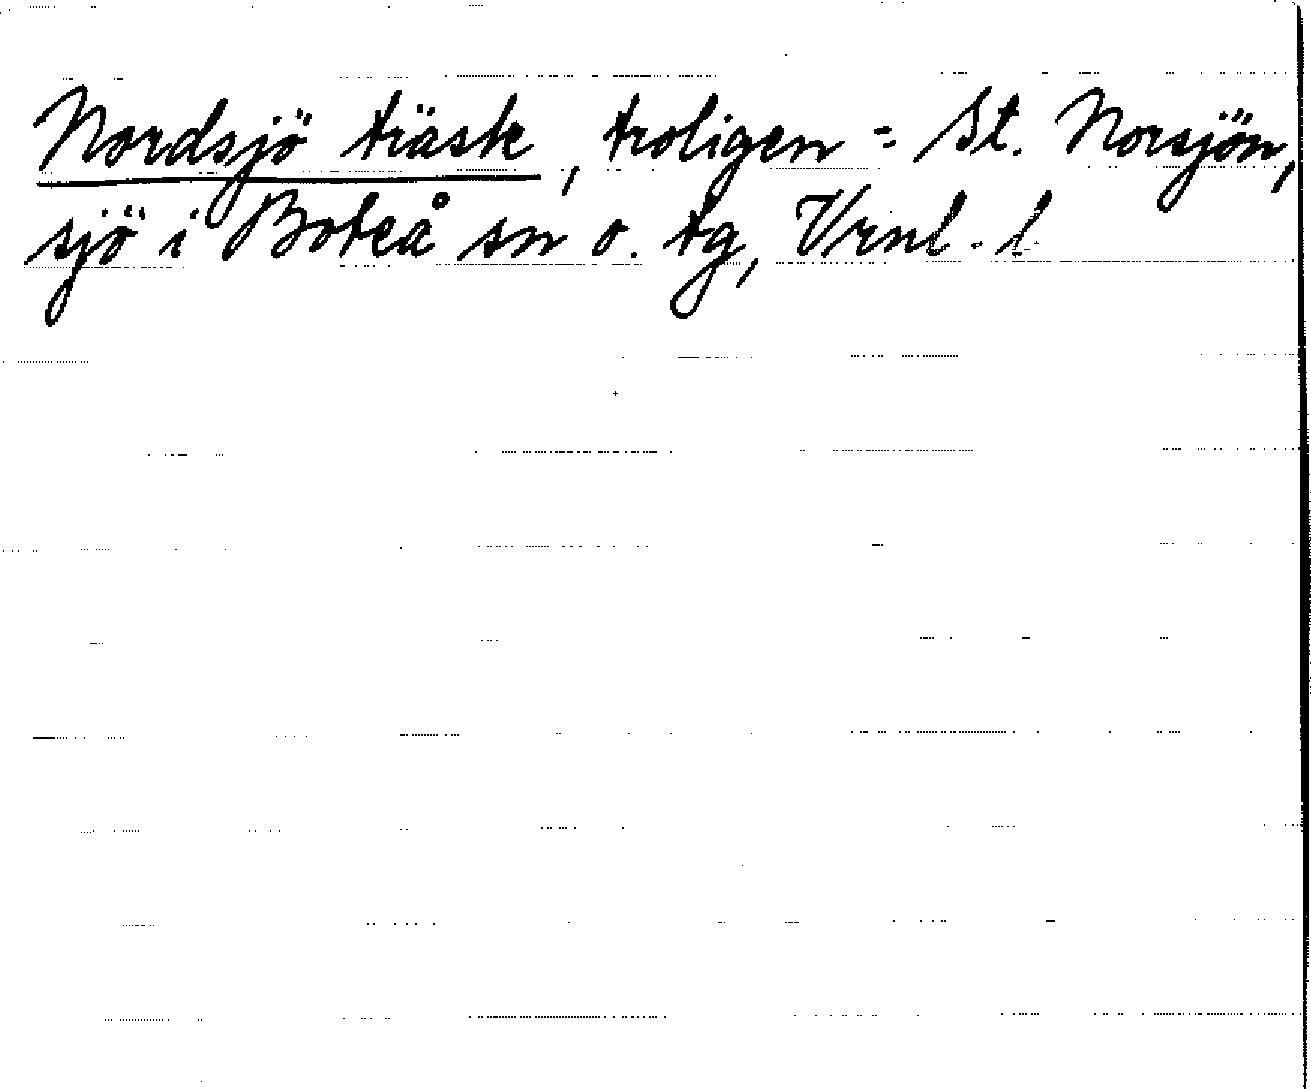 Nordsjö träsk, troligen = St. Norsjön,
sjö i Boteå sn o. tg, Vrnl. l